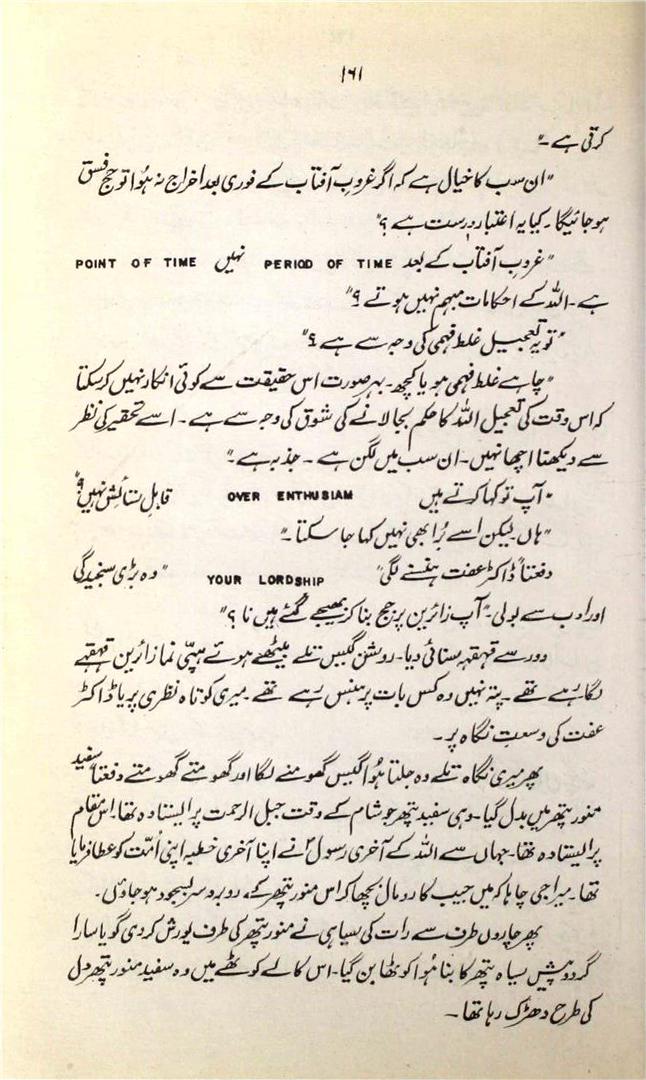 ۱۶۱
کرتی ہے۔"
"ان سب کا خیال ہے کہ اگر غروبِ آفتاب کے فوری بعد اخراج نہ ہُوا تو حج فسق
ہو جائیگا۔ کیا یہ اعتبار درست ہے ؟"
"غروبِ آفتاب کے بعد PERIOD OF TIME نہیں POINT OF TIME
ہے۔ اللہ کے احکامات مبہم نہیں ہوتے ؟"
"تو یہ تعجیل غلط فہمی کی وجہ سے ہے ؟"
"چاہے غلط فہمی ہو یا کچھ۔ بہر صورت اس حقیقت سے کوئی انکار نہیں کر سکتا
کہ اس وقت کی تعجیل اللہ کا حکم بجا لانے کی شوق کی وجہ سے ہے۔ اسے تحقیر کی نظر
سے دیکھنا اچھا نہیں۔ ان سب میں لگن ہے ۔ جذبہ ہے۔"
"آپ تو کہا کرتے ہیں OVER ENTHUSIAM قابلِ ستائش نہیں؟"
"ہاں لیکن اسے بُرا بھی نہیں کہا جا سکتا۔"
دفعتاً ڈاکٹر عفت ہنسنے لگی" YOUR LORDSHIP "وہ بڑی سنجیدگی
اور ادب سے بولی۔"آپ زائرین پر جج بنا کر بھیجے گئے ہیں نا ؟"
دور سے قہقہہ سنائی دیا۔ روشن گیس تلے بیٹھے ہوئے ہپّی نما زائرین قہقہے
لگا رہے تھے۔ پتہ نہیں وہ کس بات پر ہنس رہے تھے۔ میری کوتاہ نظری پر یا ڈاکٹر
عفت کی وسعتِ نگاہ پر۔
پھر میری نگاہ تلے وہ جلتا ہُوا گیس گھومنے لگا اور گھومتے گھومتے دفعتاً سفید
منور پتھر میں بدل گیا۔ وہی سفید پتھر جو شام کے وقت جبل الرحمت پر ایستادہ تھا۔ اس مقام
پر ایستادہ تھا۔ جہاں سے اللہ کے آخری رسولؐ نے اپنا آخری خطبہ اپنی اُمّت کو عطا فرمایا
تھا۔ میرا جی چاہا کہ میں جیب کا رومال بچھا کر اس منور پتھر کے روبرو سر بسجود ہو جاؤں۔
پھر چاروں طرف سے رات کی سیاہی نے منور پتھر کی طرف یورش کر دی گویا سارا
گردوپیش سیاہ پتھر کا بنا ہُوا کوٹھا بن گیا۔ اس کالے کوٹھے میں وہ سفید منور پتھر دل
کی طرح دھڑک رہا تھا۔